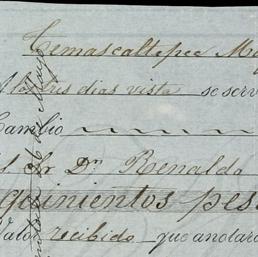 Temascaltepec May
A los tres dias vista se serv
Cambio
Sr Dn Renaldo
quinientos pes
Valor recibido que anotará